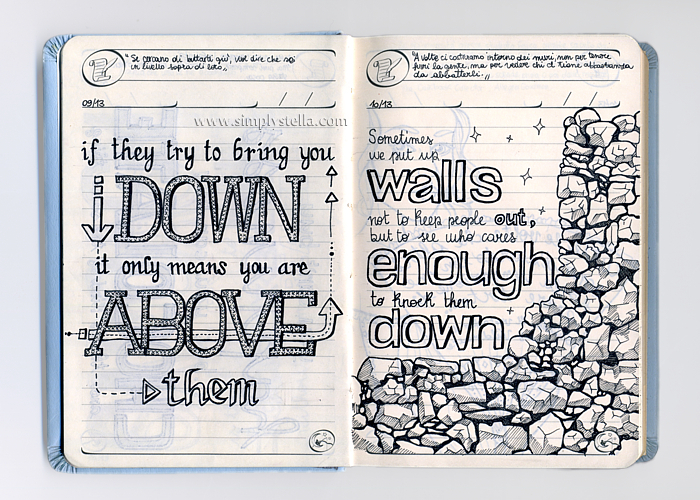 "Se cercano di buttarti giù, vuol dire che sei
un livello sopra di loro,,
09/13
www.simplystella.com
if they try to bring you
DOWN
it only means you are
ABOVE
them
"A volte ci costruiamo intorno dei muri, non per tenere
fuori la gente, ma per vedere chi ci tiene abbastanza
da abbatterli.,,
10/13
Sometimes
we put up
walls
not to keep people out,
but to see who cares
enough
to knock them
down